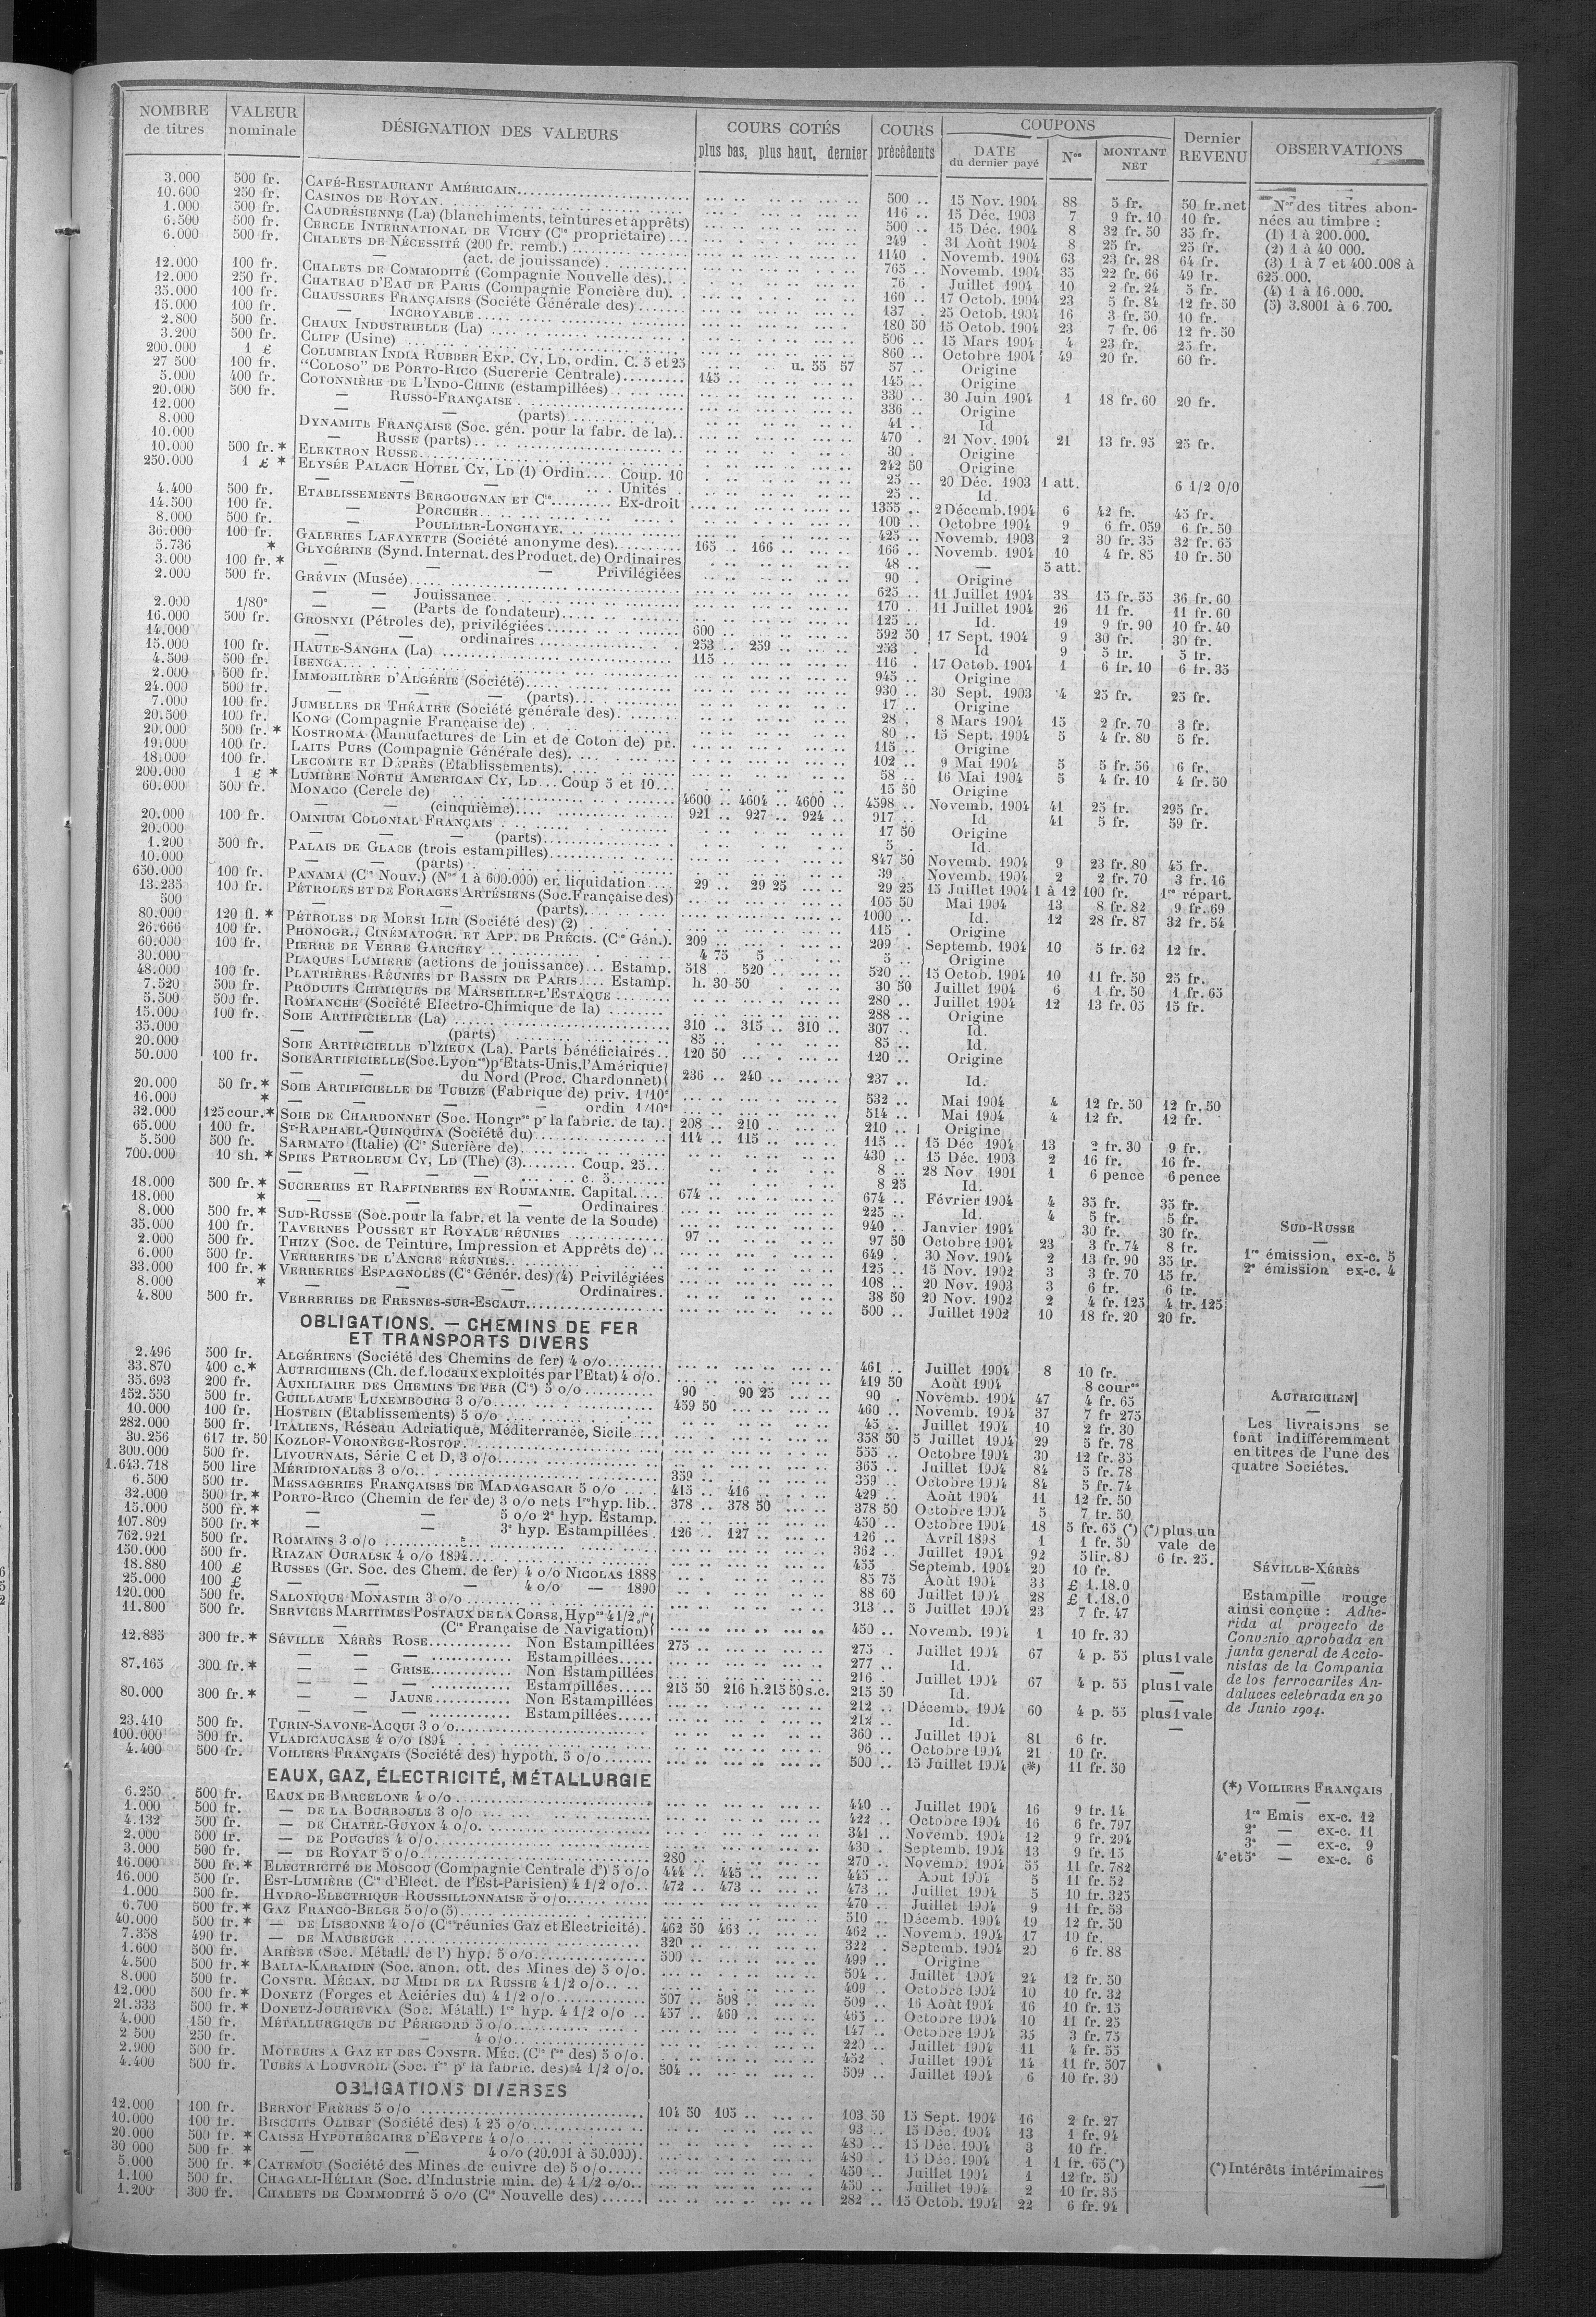 NOMBRE de titres | VALEUR nominale | DÉSIGNATION DES VALEURS | COURS COTÉS plus bas, plus haut, dernier | COURS précédents | COUPONS DATE du dernier payé | Nos | MONTANT NET | Dernier REVENU | OBSERVATIONS
3.000 500 fr. CAFÉ-RESTAURANT AMÉRICAIN 500 .. 15 Nov. 1904 88 5 fr. 50 fr.net
10.600 250 fr. CASINOS DE ROYAN 116 .. 15 Déc. 1903 7 9 fr. 10 10 fr.
1.000 500 fr. CAUDRÉSIENNE (La) (blanchiments, teintures et apprêts) 500 .. 15 Déc. 1904 8 32 fr. 50 35 fr.
6.500 500 fr. CERCLE INTERNATIONAL DE VICHY (Cie propriétaire) 249 . 31 Août 1904 8 25 fr. 25 fr.
6.000 500 fr. CHALETS DE NÉCESSITÉ (200 fr. remb.) 1140 . Novemb. 1904 63 23 fr. 28 64 fr.
— (act. de jouissance) 765 .. Novemb. 1904 35 22 fr. 66 49 fr.
12.000 100 fr. CHALETS DE COMMODITÉ (Compagnie Nouvelle des) 76 . Juillet 1904 10 2 fr. 24 5 fr.
12.000 250 fr. CHATEAU D'EAU DE PARIS (Compagnie Foncière du) 160 .. 17 Octob. 1904 23 5 fr. 84 12 fr. 50
35.000 100 fr. CHAUSSURES FRANÇAISES (Société Générale des) 137 . 25 Octob. 1904 16 3 fr. 50 10 fr.
15.000 100 fr. — INCROYABLE 180 50 15 Octob. 1904 23 7 fr. 06 12 fr. 50
2.800 500 fr. CHAUX INDUSTRIELLE (La) 506 .. 15 Mars 1904 4 23 fr. 25 fr.
3.200 500 fr. CLIFF (Usine) 860 .. Octobre 1904 49 20 fr. 60 fr.
200.000 1 £ COLUMBIAN INDIA RUBBER EXP. CY, LD, ordin. C. 5 et 25 u. 55 57 57 .. Origine
27 500 100 fr. "COLOSO" DE PORTO-RICO (Sucrerie Centrale) 145 .. 145 .. Origine
5.000 400 fr. COTONNIÈRE DE L'INDO-CHINE (estampillées) 330 .. 30 Juin 1904 1 18 fr. 60 20 fr.
20.000 500 fr. — RUSSO-FRANÇAISE 336 .. Origine
12.000 — — (parts) 41 .. Id
8.000 DYNAMITE FRANÇAISE (Soc. gén. pour la fabr. de la) 470 . 21 Nov. 1904 21 13 fr. 95 25 fr.
10.000 — RUSSE (parts) 30 . Origine
10.000 500 fr. * ELEKTRON RUSSE 242 50 Origine
250.000 1 £ * ELYSÉE PALACE HOTEL CY, LD (1) Ordin. Coup. 10 25 .. 20 Déc. 1903 1 att. 6 1/2 0/0
— — — Unités 25 .. Id.
4.400 500 fr. ETABLISSEMENTS BERGOUGNAN ET Cie Ex-droit 1355 .. 2 Décemb. 1904 6 42 fr. 45 fr.
14.500 100 fr. — PORCHER 100 .. Octobre 1904 9 6 fr. 059 6 fr. 50
8.000 500 fr. — POULLIER-LONGHAYE 425 .. Novemb. 1903 2 30 fr. 35 32 fr. 65
36.000 100 fr. GALERIES LAFAYETTE (Société anonyme des) 165 . 166 .. 166 .. Novemb. 1904 10 4 fr. 85 10 fr. 50
5.736 * GLYCÉRINE (Synd. Internat. des Product. de) Ordinaires 48 .. — 5 att.
3.000 100 fr. * — — — Privilégiées 90 . Origine
2.000 500 fr. GRÉVIN (Musée) 625 .. 11 Juillet 1904 38 15 fr. 55 36 fr. 60
— — Jouissance 170 . 11 Juillet 1904 26 11 fr. 11 fr. 60
2.000 1/80e — — (Parts de fondateur) 125 .. Id. 19 9 fr. 90 10 fr. 40
16.000 500 fr. GROSNYI (Pétroles de), privilégiées 600 .. 592 50 17 Sept. 1904 9 30 fr. 30 fr.
14.000 — — ordinaires 253 .. 259 .. 253 . Id 9 5 fr. 5 fr.
15.000 100 fr. HAUTE-SANGHA (La) 115 .. 116 . 17 Octob. 1904 1 6 fr. 10 6 fr. 35
4.500 500 fr. IBENGA 945 .. Origine
2.000 500 fr. IMMOBILIÈRE D'ALGÉRIE (Société) 930 .. 30 Sept. 1903 4 25 fr. 25 fr.
24.000 500 fr. — — — (parts) 17 .. Origine
7.000 100 fr. JUMELLES DE THÉATRE (Société générale des) 28 . 8 Mars 1904 15 2 fr. 70 3 fr.
20.500 100 fr. KONG (Compagnie Française de) 80 .. 15 Sept. 1904 5 4 fr. 80 5 fr.
20.000 500 fr. * KOSTROMA (Manufactures de Lin et de Coton de) pr. 115 .. Origine
19.000 100 fr. LAITS PURS (Compagnie Générale des) 102 .. 9 Mai 1904 5 5 fr. 56 6 fr.
18.000 100 fr. LECOMTE ET DÉPRÈS (Etablissements) 58 .. 16 Mai 1904 5 4 fr. 10 4 fr. 50
200.000 1 £ * LUMIÈRE NORTH AMERICAN CY, LD Coup 5 et 10 15 50 Origine
60.000 500 fr. MONACO (Cercle de) 4600 .. 4604 .. 4600 .. 4598 .. Novemb. 1904 41 25 fr. 295 fr.
— — (cinquième) 921 .. 927 .. 924 .. 917 .. Id. 41 5 fr. 59 fr.
20.000 100 fr. OMNIUM COLONIAL FRANÇAIS 17 50 Origine
20.000 — — (parts) 5 . Id.
1.200 500 fr. PALAIS DE GLACE (trois estampilles) 847 50 Novemb. 1904 9 23 fr. 80 45 fr.
10.000 — — (parts) 39 . Novemb. 1904 2 2 fr. 70 3 fr. 16
650.000 100 fr. PANAMA (Cie Nouv.) (Nos 1 à 600.000) en liquidation 29 .. 29 25 29 25 15 Juillet 1904 1 à 12 100 fr. 1re répart.
13.235 100 fr. PÉTROLES ET DE FORAGES ARTÉSIENS (Soc. Française des) 105 50 Mai 1904 13 8 fr. 82 9 fr. 69
500 — — (parts) 1000 .. Id. 12 28 fr. 87 32 fr. 54
80.000 120 fl. * PÉTROLES DE MOESI ILIR (Société des) (2) 115 . Origine
26.666 100 fr. PHONOGR., CINÉMATOGR. ET APP. DE PRÉCIS. (Cie Gén.) 209 .. 209 . Septemb. 1904 10 5 fr. 62 12 fr.
60.000 100 fr. PIERRE DE VERRE GARCHEY 4 75 5 .. 5 .. Origine
30.000 PLAQUES LUMIÈRE (actions de jouissance) Estamp. 518 .. 520 .. 520 .. 15 Octob. 1904 10 11 fr. 50 25 fr.
48.000 100 fr. PLATRIÈRES RÉUNIES DU BASSIN DE PARIS Estamp. h. 30 50 30 50 Juillet 1904 6 1 fr. 50 1 fr. 65
7.520 500 fr. PRODUITS CHIMIQUES DE MARSEILLE-L'ESTAQUE 280 .. Juillet 1904 12 13 fr. 05 15 fr.
5.500 500 fr. ROMANCHE (Société Electro-Chimique de la) 288 .. Origine
15.000 100 fr. SOIE ARTIFICIELLE (La) 310 .. 315 .. 310 .. 307 .. Id.
35.000 — — (parts) 85 .. 85 .. Id.
20.000 SOIE ARTIFICIELLE D'IZIEUX (La). Parts bénéficiaires 120 50 120 .. Origine
50.000 100 fr. SOIE ARTIFICIELLE (Soc. Lyonnse) pr Etats-Unis, l'Amérique
— — du Nord (Proc. Chardonnet) 236 .. 240 .. 237 .. Id.
20.000 50 fr. * SOIE ARTIFICIELLE DE TUBIZE (Fabrique de) priv. 1/10e 532 .. Mai 1904 4 12 fr. 50 12 fr. 50
16.000 * — — — ordin 1/10e 514 .. Mai 1904 4 12 fr. 12 fr.
32.000 125 cour. * SOIE DE CHARDONNET (Soc. Hongrse pr la fabric. de la) 208 .. 210 .. 210 .. Origine
65.000 100 fr. ST-RAPHAEL-QUINQUINA (Société du) 114 .. 115 .. 115 .. 15 Déc 1904 13 2 fr. 30 9 fr.
5.500 500 fr. SARMATO (Italie) (Cie Sucrière de) 430 .. 15 Déc. 1903 2 16 fr. 16 fr.
700.000 10 sh. * SPIES PETROLEUM CY, LD (The) (3) Coup. 25 8 .. 28 Nov. 1901 1 6 pence 6 pence
— — — c. 5 8 25 Id.
18.000 500 fr. * SUCRERIES ET RAFFINERIES EN ROUMANIE. Capital 674 .. 674 .. Février 1904 4 35 fr. 35 fr.
18.000 * — — — Ordinaires 225 .. Id. 4 5 fr. 5 fr.
8.000 500 fr. * SUD-RUSSE (Soc. pour la fabr. et la vente de la Soude) 940 .. Janvier 1904 30 fr. 30 fr.
35.000 100 fr. TAVERNES POUSSET ET ROYALE RÉUNIES 97 .. 97 50 Octobre 1904 23 3 fr. 74 8 fr.
2.000 500 fr. THIZY (Soc. de Teinture, Impression et Apprêts de) 649 . 30 Nov. 1904 2 13 fr. 90 35 fr.
6.000 500 fr. VERRERIES DE L'ANCRE RÉUNIES 125 .. 15 Nov. 1902 3 3 fr. 70 15 fr.
33.000 100 fr. * VERRERIES ESPAGNOLES (Cie Génér. des) (4) Privilégiées 108 .. 20 Nov. 1903 3 6 fr. 6 fr.
8.000 * — — Ordinaires 38 50 20 Nov. 1902 2 4 fr. 125 4 fr. 125
4.800 500 fr. VERRERIES DE FRESNES-SUR-ESCAUT 500 .. Juillet 1902 10 18 fr. 20 20 fr.
OBLIGATIONS. — CHEMINS DE FER
ET TRANSPORTS DIVERS
2.496 500 fr. ALGÉRIENS (Société des Chemins de fer) 4 o/o 461 .. Juillet 1904 8 10 fr.
33.870 400 c. * AUTRICHIENS (Ch. de f. locaux exploités par l'Etat) 4 o/o 419 50 Août 1904 8 cournes
35.693 200 fr. AUXILIAIRE DES CHEMINS DE FER (Cie) 5 o/o 90 90 25 90 . Novemb. 1904 47 4 fr. 65
152.550 500 fr. GUILLAUME LUXEMBOURG 3 o/o 459 50 460 .. Novemb. 1904 37 7 fr 275
10.000 100 fr. HOSTEIN (Etablissements) 5 o/o 45 .. Juillet 1904 10 2 fr. 30
282.000 500 fr. ITALIENS, Réseau Adriatique, Méditerranée, Sicile 358 50 5 Juillet 1904 29 5 fr. 78
30.256 617 fr. 50 KOZLOF-VORONÈGE-ROSTOF 555 .. Octobre 1904 30 12 fr. 35
300.000 500 fr. LIVOURNAIS, Série C et D, 3 o/o 365 .. Juillet 1904 84 5 fr. 78
1.643.718 500 lire MÉRIDIONALES 3 o/o 359 .. 359 .. Octobre 1904 84 5 fr. 74
6.500 500 fr. MESSAGERIES FRANÇAISES DE MADAGASCAR 5 o/o 415 .. 416 .. 429 .. Août 1904 11 12 fr. 50
32.000 500 fr. * PORTO-RICO (Chemin de fer de) 3 o/o nets 1re hyp. lib. 378 .. 378 50 378 50 Octobre 1904 5 7 fr. 50
15.000 500 fr. * — — 5 o/o 2e hyp. Estamp. 450 .. Octobre 1904 18 5 fr. 65 (*) (*) plus un
107.809 500 fr. * — — 3e hyp. Estampillées 126 .. 127 .. 126 .. Avril 1898 1 1 fr. 50 vale de
762.921 500 fr. ROMAINS 3 o/o 362 .. Juillet 1904 92 5 lir. 80 6 fr. 25.
150.000 500 fr. RIAZAN OURALSK 4 o/o 1894 455 Septemb. 1904 20 10 fr.
18.880 100 £ RUSSES (Gr. Soc. des Chem. de fer) 4 o/o NICOLAS 1888 85 75 Août 1904 33 £ 1.18.0
25.000 100 £ — — — 4 o/o — 1890 88 60 Juillet 1904 28 £ 1.18.0
120.000 500 fr. SALONIQUE MONASTIR 3 o/o 313 .. 5 Juillet 1904 23 7 fr. 47
11.800 500 fr. SERVICES MARITIMES POSTAUX DE LA CORSE, Hypes 4 1/2 o/o
— (Cie Française de Navigation) 450 .. Novemb. 1904 1 10 fr. 30
12.835 300 fr. * SÉVILLE XÉRÈS ROSE Non Estampillées 275 .. 275 . Juillet 1904 67 4 p. 55 plus 1 vale
— — — Estampillées 277 .. Id. —
87.165 300 fr. * — — GRISE Non Estampillées 216 .. Juillet 1904 67 4 p. 55 plus 1 vale
— — — Estampillées 215 50 216 h. 215 50 s.c. 215 50 Id. —
80.000 300 fr. * — — JAUNE Non Estampillées 212 .. Décemb. 1904 60 4 p. 55 plus 1 vale
— — — Estampillées 212 .. Id. —
23.410 500 fr. TURIN-SAVONE-ACQUI 3 o/o 360 .. Juillet 1904 81 6 fr.
100.000 500 fr. VLADICAUCASE 4 o/o 1894 96 .. Octobre 1904 21 10 fr.
4.400 500 fr. VOILIERS FRANÇAIS (Société des) hypoth. 5 o/o 500 .. 15 Juillet 1904 (*) 11 fr. 50
EAUX, GAZ, ÉLECTRICITÉ, MÉTALLURGIE
6.250 500 fr. EAUX DE BARCELONE 4 o/o 440 .. Juillet 1904 16 9 fr. 14
1.000 500 fr. — DE LA BOURBOULE 3 o/o 422 .. Octobre 1904 16 6 fr. 797
4.132 500 fr. — DE CHATEL-GUYON 4 o/o 341 .. Novemb. 1904 12 9 fr. 294
2.000 500 fr. — DE POUGUES 4 o/o 430 .. Septemb. 1904 13 9 fr. 15
3.000 500 fr. — DE ROYAT 5 o/o 280 .. 270 .. Novemb. 1904 55 11 fr. 782
16.000 500 fr. * ELECTRICITÉ DE MOSCOU (Compagnie Centrale d') 5 o/o 444 .. 445 .. 445 .. Août 1904 5 11 fr. 52
16.000 500 fr. EST-LUMIÈRE (Cie d'Elect. de l'Est-Parisien) 4 1/2 o/o 472 .. 473 .. 473 .. Juillet 1904 5 10 fr. 325
1.000 500 fr. HYDRO-ÉLECTRIQUE ROUSSILLONNAISE 5 o/o 470 .. Juillet 1904 9 11 fr. 53
6.700 500 fr. * GAZ FRANCO-BELGE 5 o/o (5) 510 .. Décemb. 1904 19 12 fr. 50
40.000 500 fr. * — DE LISBONNE 4 o/o (Cies réunies Gaz et Electricité) 462 50 463 .. 462 .. Novemb. 1904 17 10 fr.
7.358 490 fr. — DE MAUBEUGE 320 .. 322 . Septemb. 1904 20 6 fr. 88
1.600 500 fr. ARIÈGE (Soc. Métall. de l') hyp. 5 o/o 500 .. 499 .. Origine
4.500 500 fr. * BALIA-KARAIDIN (Soc. anon. ott. des Mines de) 5 o/o 504 .. Juillet 1904 24 12 fr. 50
8.000 500 fr. CONSTR. MÉCAN. DU MIDI DE LA RUSSIE 4 1/2 o/o 409 .. Octobre 1904 10 10 fr. 32
12.000 500 fr. * DONETZ (Forges et Aciéries du) 4 1/2 o/o 507 .. 508 . 509 .. 16 Août 1904 16 10 fr. 15
21.333 500 fr. * DONETZ-JOURIEVKA (Soc. Métall.) 1re hyp. 4 1/2 o/o 457 .. 460 .. 465 .. Octobre 1904 10 11 fr. 25
4.000 150 fr. MÉTALLURGIQUE DU PÉRIGORD 5 o/o 147 .. Octobre 1904 35 3 fr. 75
2 500 250 fr. — 4 o/o 220 .. Juillet 1904 11 4 fr. 55
2.900 500 fr. MOTEURS A GAZ ET DES CONSTR. MÉC. (Cie fse des) 5 o/o 452 . Juillet 1904 14 11 fr. 507
4.400 500 fr. TUBES A LOUVROIL (Soc. fse pr la fabric. des) 4 1/2 o/o 504 .. 509 .. Juillet 1904 6 10 fr. 30
OBLIGATIONS DIVERSES
12.000 100 fr. BERNOT FRÈRES 5 o/o 104 50 105 .. 103 50 15 Sept. 1904 16 2 fr. 27
10.000 100 fr. BISCUITS OLIBET (Société des) 4 25 o/o 93 .. 15 Déc. 1904 13 1 fr. 94
20.000 500 fr. * CAISSE HYPOTHÉCAIRE D'EGYPTE 4 o/o 480 .. 15 Déc. 1904 3 10 fr.
30 000 500 fr. * — — 4 o/o (20.001 à 50.000) 480 . 15 Déc. 1904 1 1 fr. 65 (*)
5.000 500 fr. * CATEMOU (Société des Mines de cuivre de) 5 o/o 450 .. Juillet 1904 1 12 fr. 50
1.100 500 fr. CHAGALI-HÉLIAR (Soc. d'Industrie min. de) 4 1/2 o/o 450 .. Juillet 1904 2 10 fr. 35
1.200 300 fr. CHALETS DE COMMODITÉ 5 o/o (Cie Nouvelle des) 282 .. 15 Octob. 1904 22 6 fr. 94
Nos des titres abon-
nées au timbre :
(1) 1 à 200.000.
(2) 1 à 40 000.
(3) 1 à 7 et 400.008 à
625.000.
(4) 1 à 16.000.
(5) 3.8001 à 6 700.
SUD-RUSSE
1re émission, ex-c. 5
2e émission ex-c. 4
AUTRICHIEN
Les livraisons se
font indifféremment
en titres de l'une des
quatre Sociétes.
SÉVILLE-XÉRÈS
Estampille rouge
ainsi conçue : Adhe-
rida al proyecto de
Convenio aprobada en
junta general de Accio-
nistas de la Compania
de los ferrocariles An-
daluces celebrada en 30
de Junio 1904.
(*) VOILIERS FRANÇAIS
1re Emis ex-c. 12
2e — ex-c. 11
3e — ex-c. 9
4e et 5e — ex-c. 6
(*) Intérêts intérimaires